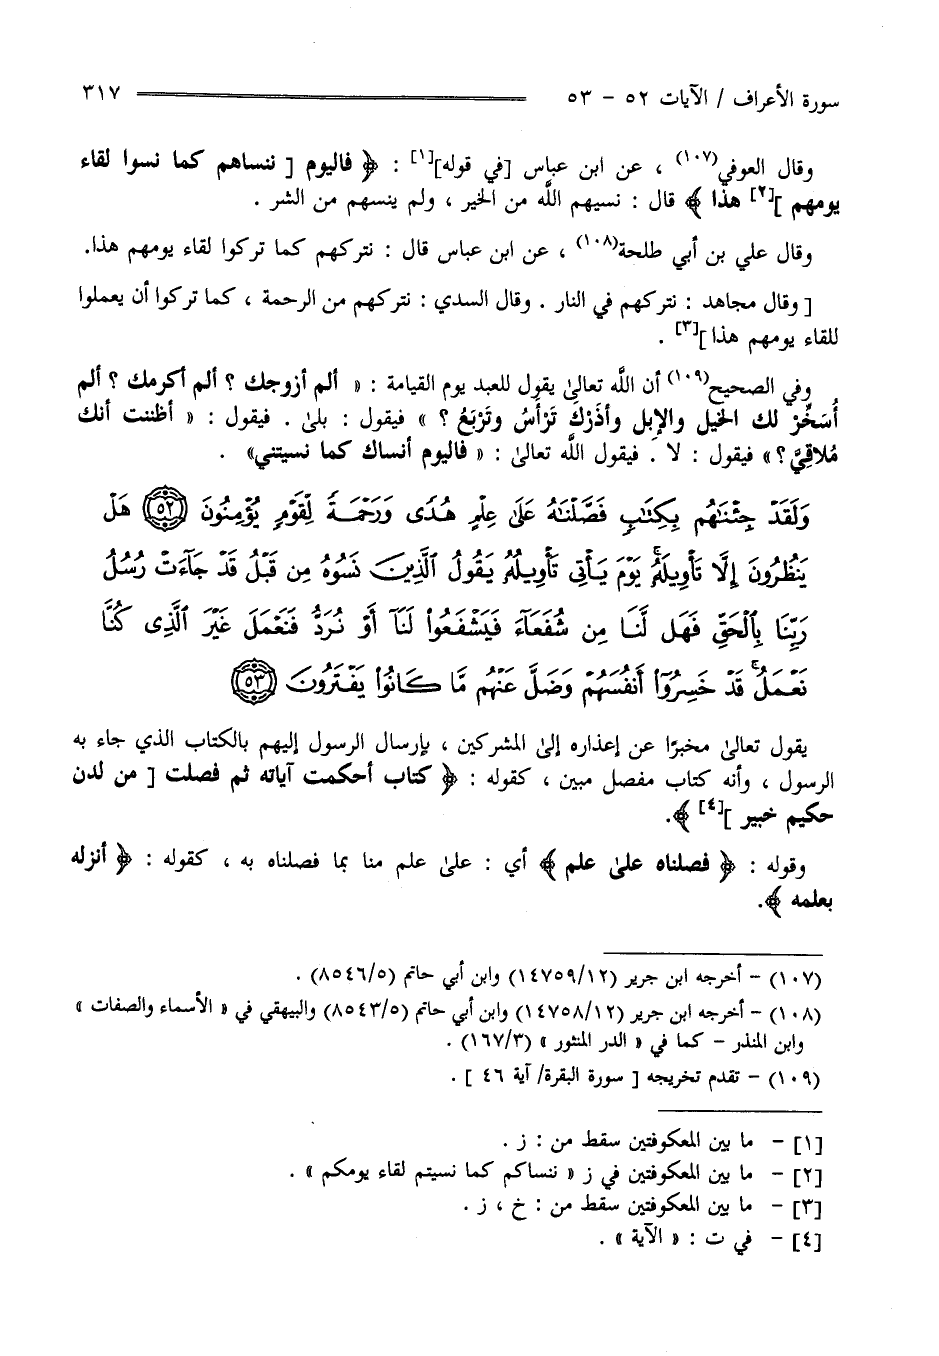 سورة الأعراف / الآيات ٥٢ – ٥٣ ٣١٧
وقال العوفي(١٠٧) ، عن ابن عباس [في قوله][١] : ﴿ فاليوم [ ننساهم كما نسوا لقاء
يومهم ][٢] هذا ﴾ قال : نسيهم اللَّه من الخير ، ولم ينسهم من الشر .
وقال علي بن أبي طلحة(١٠٨) ، عن ابن عباس قال : نتركهم كما تركوا لقاء يومهم هذا.
[ وقال مجاهد : نتركهم في النار . وقال السدي : نتركهم من الرحمة ، كما تركوا أن يعملوا
للقاء يومهم هذا ][٣] .
وفي الصحيح(١٠٩) أن اللَّه تعالىٰ يقول للعبد يوم القيامة : « ألم أزوجك ؟ ألم أكرمك ؟ ألم
أُسَخِّرْ لك الخيل والإبل وأَذَرْكَ تَرْأَسُ وتَرْبَعُ ؟ » فيقول : بلىٰ . فيقول : « أظننت أنك
مُلاقِيَّ ؟» فيقول : لا . فيقول اللَّه تعالىٰ : « فاليوم أنساك كما نسيتني» .
وَلَقَدۡ جِئۡنَٰهُم بِكِتَٰبٖ فَصَّلۡنَٰهُ عَلَىٰ عِلۡمٍ هُدٗى وَرَحۡمَةٗ لِّقَوۡمٖ يُؤۡمِنُونَ ٥٢ هَلۡ
يَنظُرُونَ إِلَّا تَأۡوِيلَهُۥۚ يَوۡمَ يَأۡتِي تَأۡوِيلُهُۥ يَقُولُ ٱلَّذِينَ نَسُوهُ مِن قَبۡلُ قَدۡ جَآءَتۡ رُسُلُ
رَبِّنَا بِٱلۡحَقِّ فَهَل لَّنَا مِن شُفَعَآءَ فَيَشۡفَعُواْ لَنَآ أَوۡ نُرَدُّ فَنَعۡمَلَ غَيۡرَ ٱلَّذِي كُنَّا
نَعۡمَلُۚ قَدۡ خَسِرُوٓاْ أَنفُسَهُمۡ وَضَلَّ عَنۡهُم مَّا كَانُواْ يَفۡتَرُونَ ٥٣
يقول تعالىٰ مخبرًا عن إعذاره إلىٰ المشركين ، بإرسال الرسول إليهم بالكتاب الذي جاء به
الرسول ، وأنه كتاب مفصل مبين ، كقوله : ﴿ كتاب أحكمت آياته ثم فصلت [ من لدن
حكيم خبير ][٤] ﴾.
وقوله : ﴿ فصلناه علىٰ علم ﴾ أي : علىٰ علم منا بما فصلناه به ، كقوله : ﴿ أنزله
بعلمه ﴾.
(١٠٧) – أخرجه ابن جرير (١٤٧٥٩/١٢) وابن أبي حاتم (٨٥٤٦/٥) .
(١٠٨) – أخرجه ابن جرير (١٤٧٥٨/١٢) وابن أبي حاتم (٨٥٤٣/٥) والبيهقي في « الأسماء والصفات »
وابن المنذر – كما في « الدر المنثور » (١٦٧/٣) .
(١٠٩) – تقدم تخريجه [ سورة البقرة/ آية ٤٦ ] .
[١] – ما بين المعكوفتين سقط من : ز .
[٢] – ما بين المعكوفتين في ز « ننساكم كما نسيتم لقاء يومكم » .
[٣] – ما بين المعكوفتين سقط من : خ ، ز .
[٤] – في ت : « الآية » .